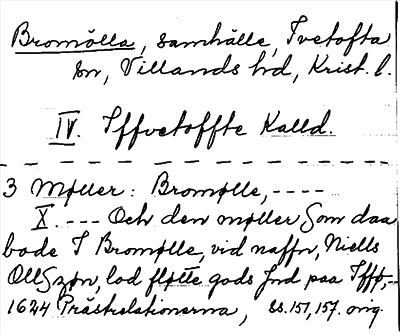 Bromölla, samhälle, Ivetofta
sn, Villands hd, Krist. l.
IV. Iffvetoffte Kalld.
3 Møller: Bromølle, ----
X. --- Och den møller Som daa
bode I Bromølle, vid naffn, Niells
OllSzøn, lod fløtte gods Ind paa Iffø,-
1624 Prästrelationerna, ss. 151, 157. orig.